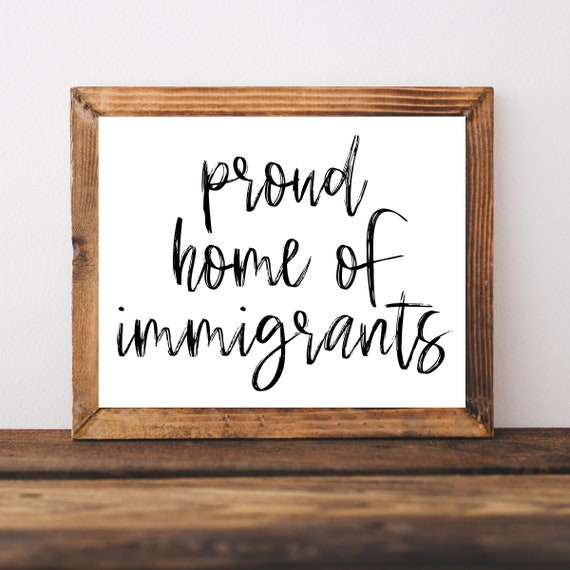 proud
home of
immigrants